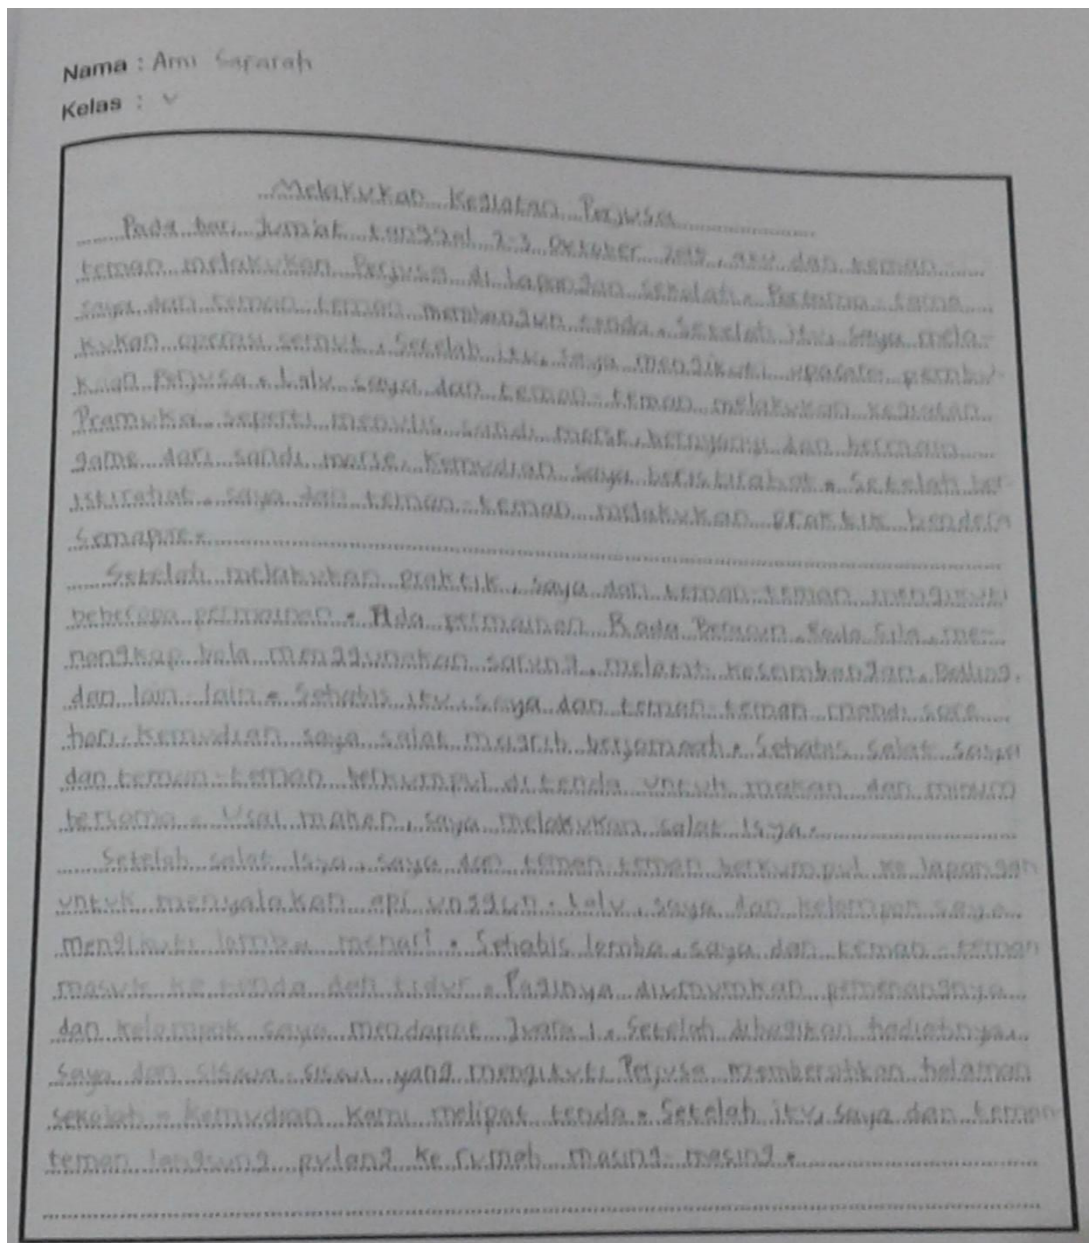 Nama : Ami Saparah
Kelas : V
Melakukan Kegiatan Perjusa
Pada hari Jum'at tanggal 2-3 Oktober 2015, aku dan teman
teman melakukan Perjusa di lapangan sekolah. Pertama-tama
saya dan teman-teman membangun tenda. Setelah itu, saya mela-
kukan operasi semut. Setelah itu, saya mengikuti upacara pembu-
kaan Perjusa. Lalu saya dan teman-teman melakukan kegiatan
Pramuka seperti menulis sandi morse, bernyanyi dan bermain
game dari sandi morse. Kemudian saya beristirahat. Setelah ber-
istirahat, saya dan teman-teman melakukan praktik bendera
Semapore.
Setelah melakukan praktik, saya dan teman-teman mengikuti
beberapa permainan. Ada permainan Rada Beracun, me-
nangkap bola menggunakan sarung, melatih keseimbangan, Bolling,
dan lain-lain. Sehabis itu, saya dan teman-teman mandi sore
hari. Kemudian saya salat magrib berjamaah. Sehabis salat saya
dan teman-teman berkumpul di tenda untuk makan dan minum
bersama. Usai makan, saya melakukan salat Isya.
Setelah salat Isya, saya dan teman-teman berkumpul ke lapangan
untuk menyalakan api unggun. Lalu, saya dan kelompok saya
mengikuti lomba menari. Sehabis lomba, saya dan teman-teman
masuk ke tenda dan tidur. Paginya diumumkan pemenangnya
dan kelompok saya mendapat Juara 1. Setelah dibagikan hadiahnya,
Saya dan siswa-siswi yang mengikuti Perjusa membersihkan halaman
sekolah. Kemudian kami melipat tenda. Setelah itu, saya dan teman-
teman langsung pulang ke rumah masing-masing.